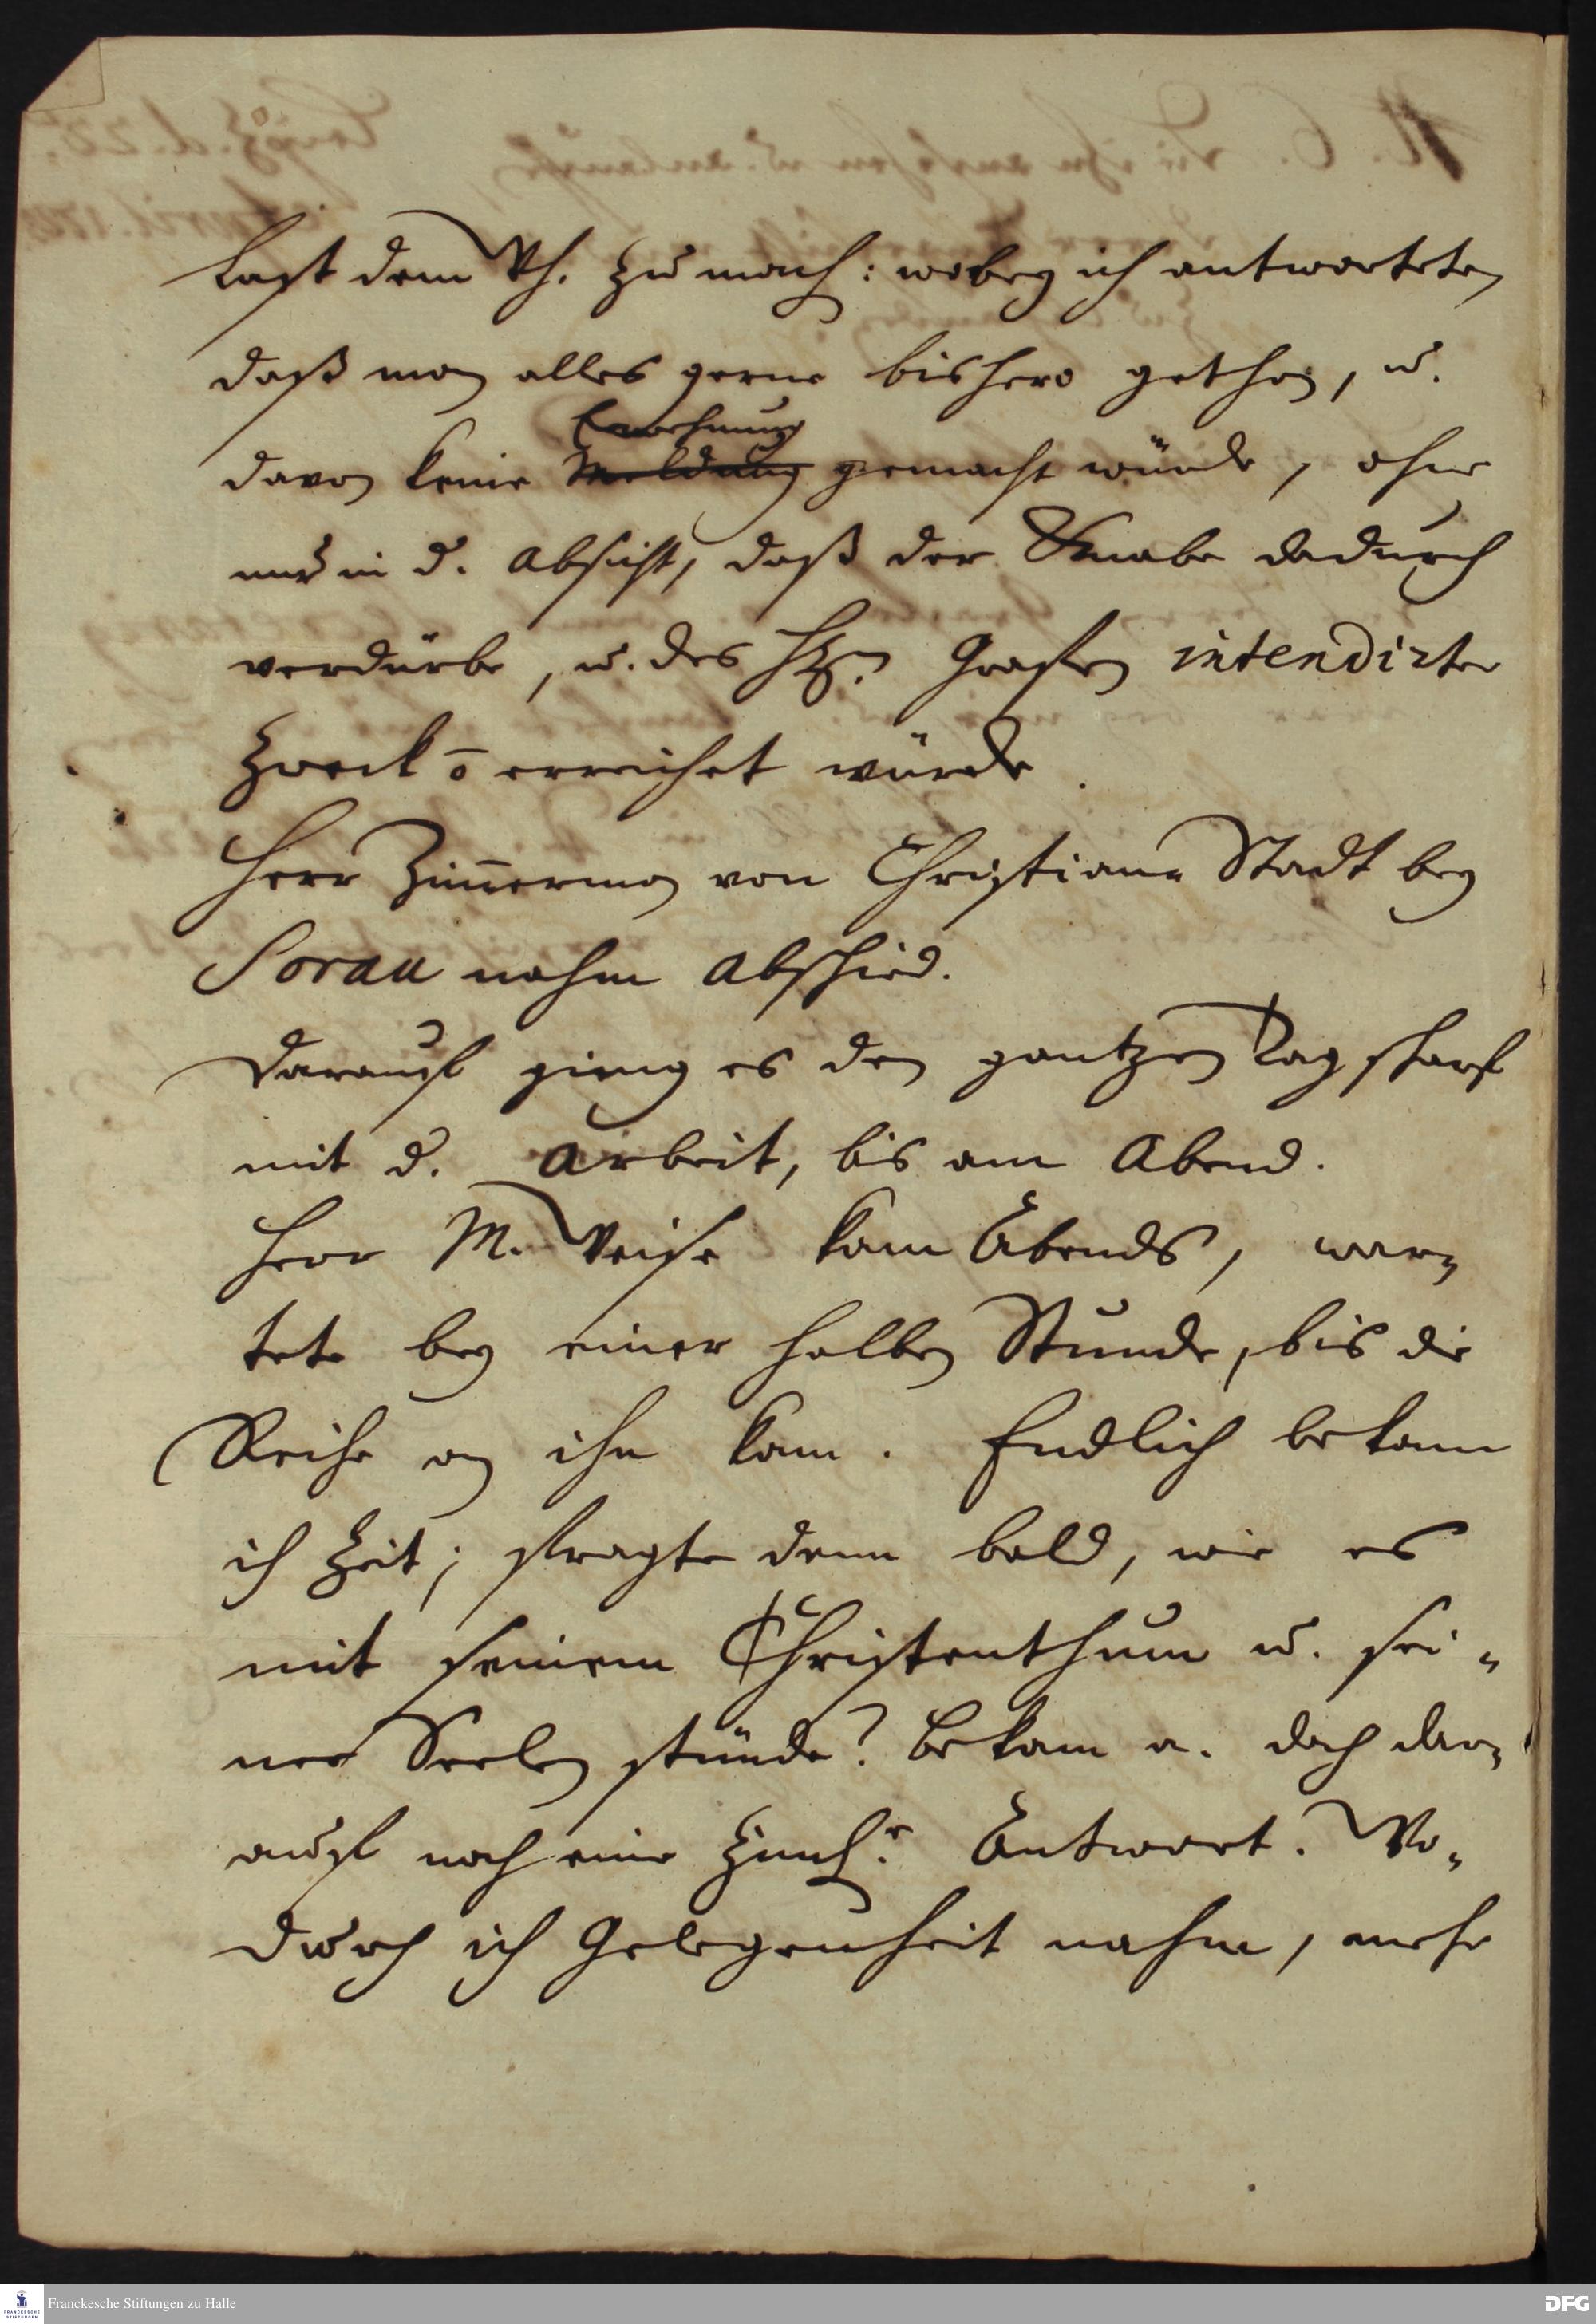 Last dem Wh. zu mach: wobey ich antwortete,
daß man alles gerne bishero gethan, u.
Erwehnung
davon keine Meldung gemacht würde, ohne
nur in d. Absicht, daß der Knabe dadurch
verdürbe, u. des Hℎ. Grafen intendirter
Zweck ō erreichet würde.
Herr Zim̄erman von Christian-Stadt bey
Sorau nahm Abschied.
Darauf gieng es den gantzen Tag scharf
mit d. Arbeit, bis am Abend.
Herr M. Weise kam Abends, war-
tete bey einer halben Stunde, bis die
Reihe an ihn kam. Endlich bekam
ich Zeit; fragte denn bald, wie es
mit seinem Christenthum u. sei-
ner Seelen stünde? Bekam a. doch dar-
auf noch eine ziml. Antwort. Wo-
durch ich Gelegenheit nahm, mehr
Franckesche Stiftungen zu Halle
DFG